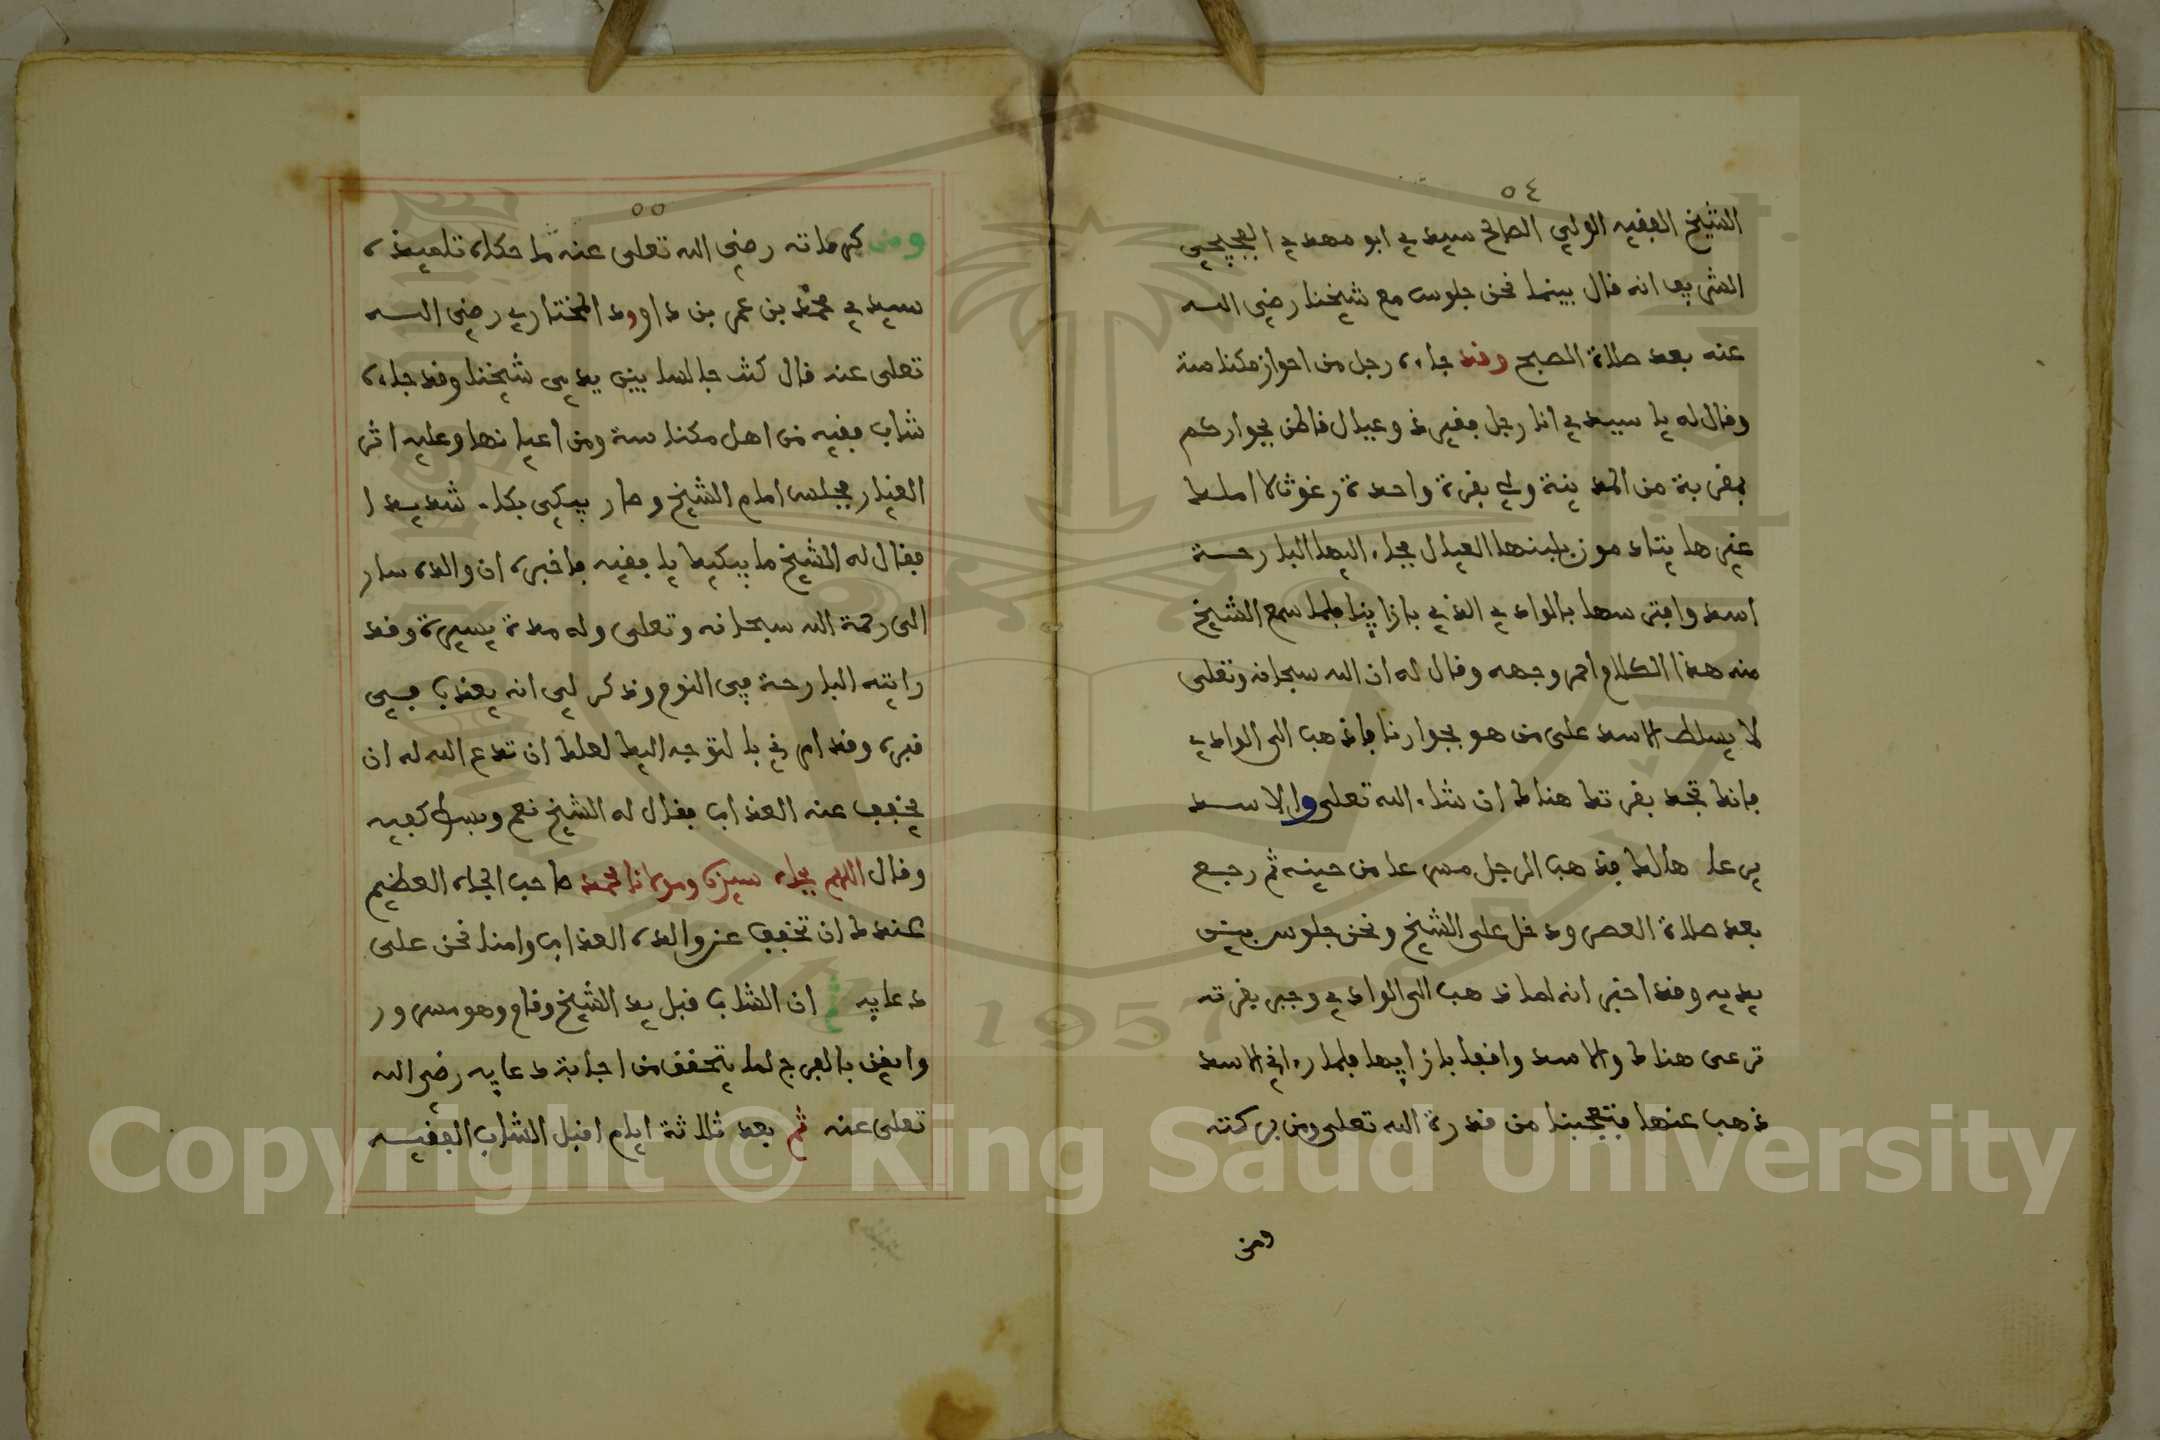 ٥٤
الشيخ الفقيه الولي الصالح سيدي ابو مهدي
الشريف انه قال بينما نحن جلوس مع شيخنا رضي الله
عنه بعد صلاة الصبح وقد جاءه رجل من احواز مكناسة
وقال له يا سيدي انا رجل فقير ذو عيال قاطن بجواركم
بمقربة من المدينة ولي بقرة واحدة رغوث لا املك
غيرها يتادمون بلبنها العيال فجاء اليها البارحة
اسد وافترسها بالوادي الذي بازاينا فلما سمع الشيخ
منه هذا الكلام احمر وجهه وقال له ان الله سبحانه وتعلى
لا يسلط الاسد على من هو بجوارنا فاذهب الى الوادي
فانك تجد بقرتك هناك ان شاء الله تعلى والاسد
يرعاها لك فذهب الرجل مسرعا من حينه ثم رجع
بعد صلاة العصر ودخل على الشيخ ونحن جلوس بين
يديه وقد اخبر انه لما ذهب الى الوادي وجد بقرته
ترعى هناك والاسد واقفا بازايها فلما رءاني الاسد
ذهب عنها فتعجبنا من قدرة الله تعلى ومن بركته
ومن
٥٥
ومن كراماته رضي الله تعلى عنه ما حكاه تلميذه
سيدي محمد بن عمر بن داوود المختاري رضي الله
تعلى عنه قال كنت جالسا بين يدي شيخنا وقد جاءه
شاب فقيه من اهل مكناسة ومن اعيانها وعليه اثر
الغيار فجلس امام الشيخ وصار يبكي بكاء شديدا
فقال له الشيخ ما يبكيك يا فقيه فاخبره ان والده سار
الى رحمة الله سبحانه وتعلى وله مدة يسيرة وقد
رايته البارحة في النوم وذكر لي انه يعذب في
قبره وقد امرني بالتوجه اليك لعلك ان تدع الله له ان
يخفف عنه العذاب فقال له الشيخ نعم وبسط كفيه
وقال اللهم بجاه سيدنا ومولانا محمد صاحب الجاه العظيم
عندك ان تخفف عن والده العذاب وامنا نحن على
دعايه ثم ان الشاب قبل يد الشيخ وقام وهو مسرور
وايقن بالفرج لما يتحقق من اجابة دعايه رضي الله
تعلى عنه ثم بعد ثلاثة ايام اقبل الشاب الفقيه
Copyright © King Saud University
1957